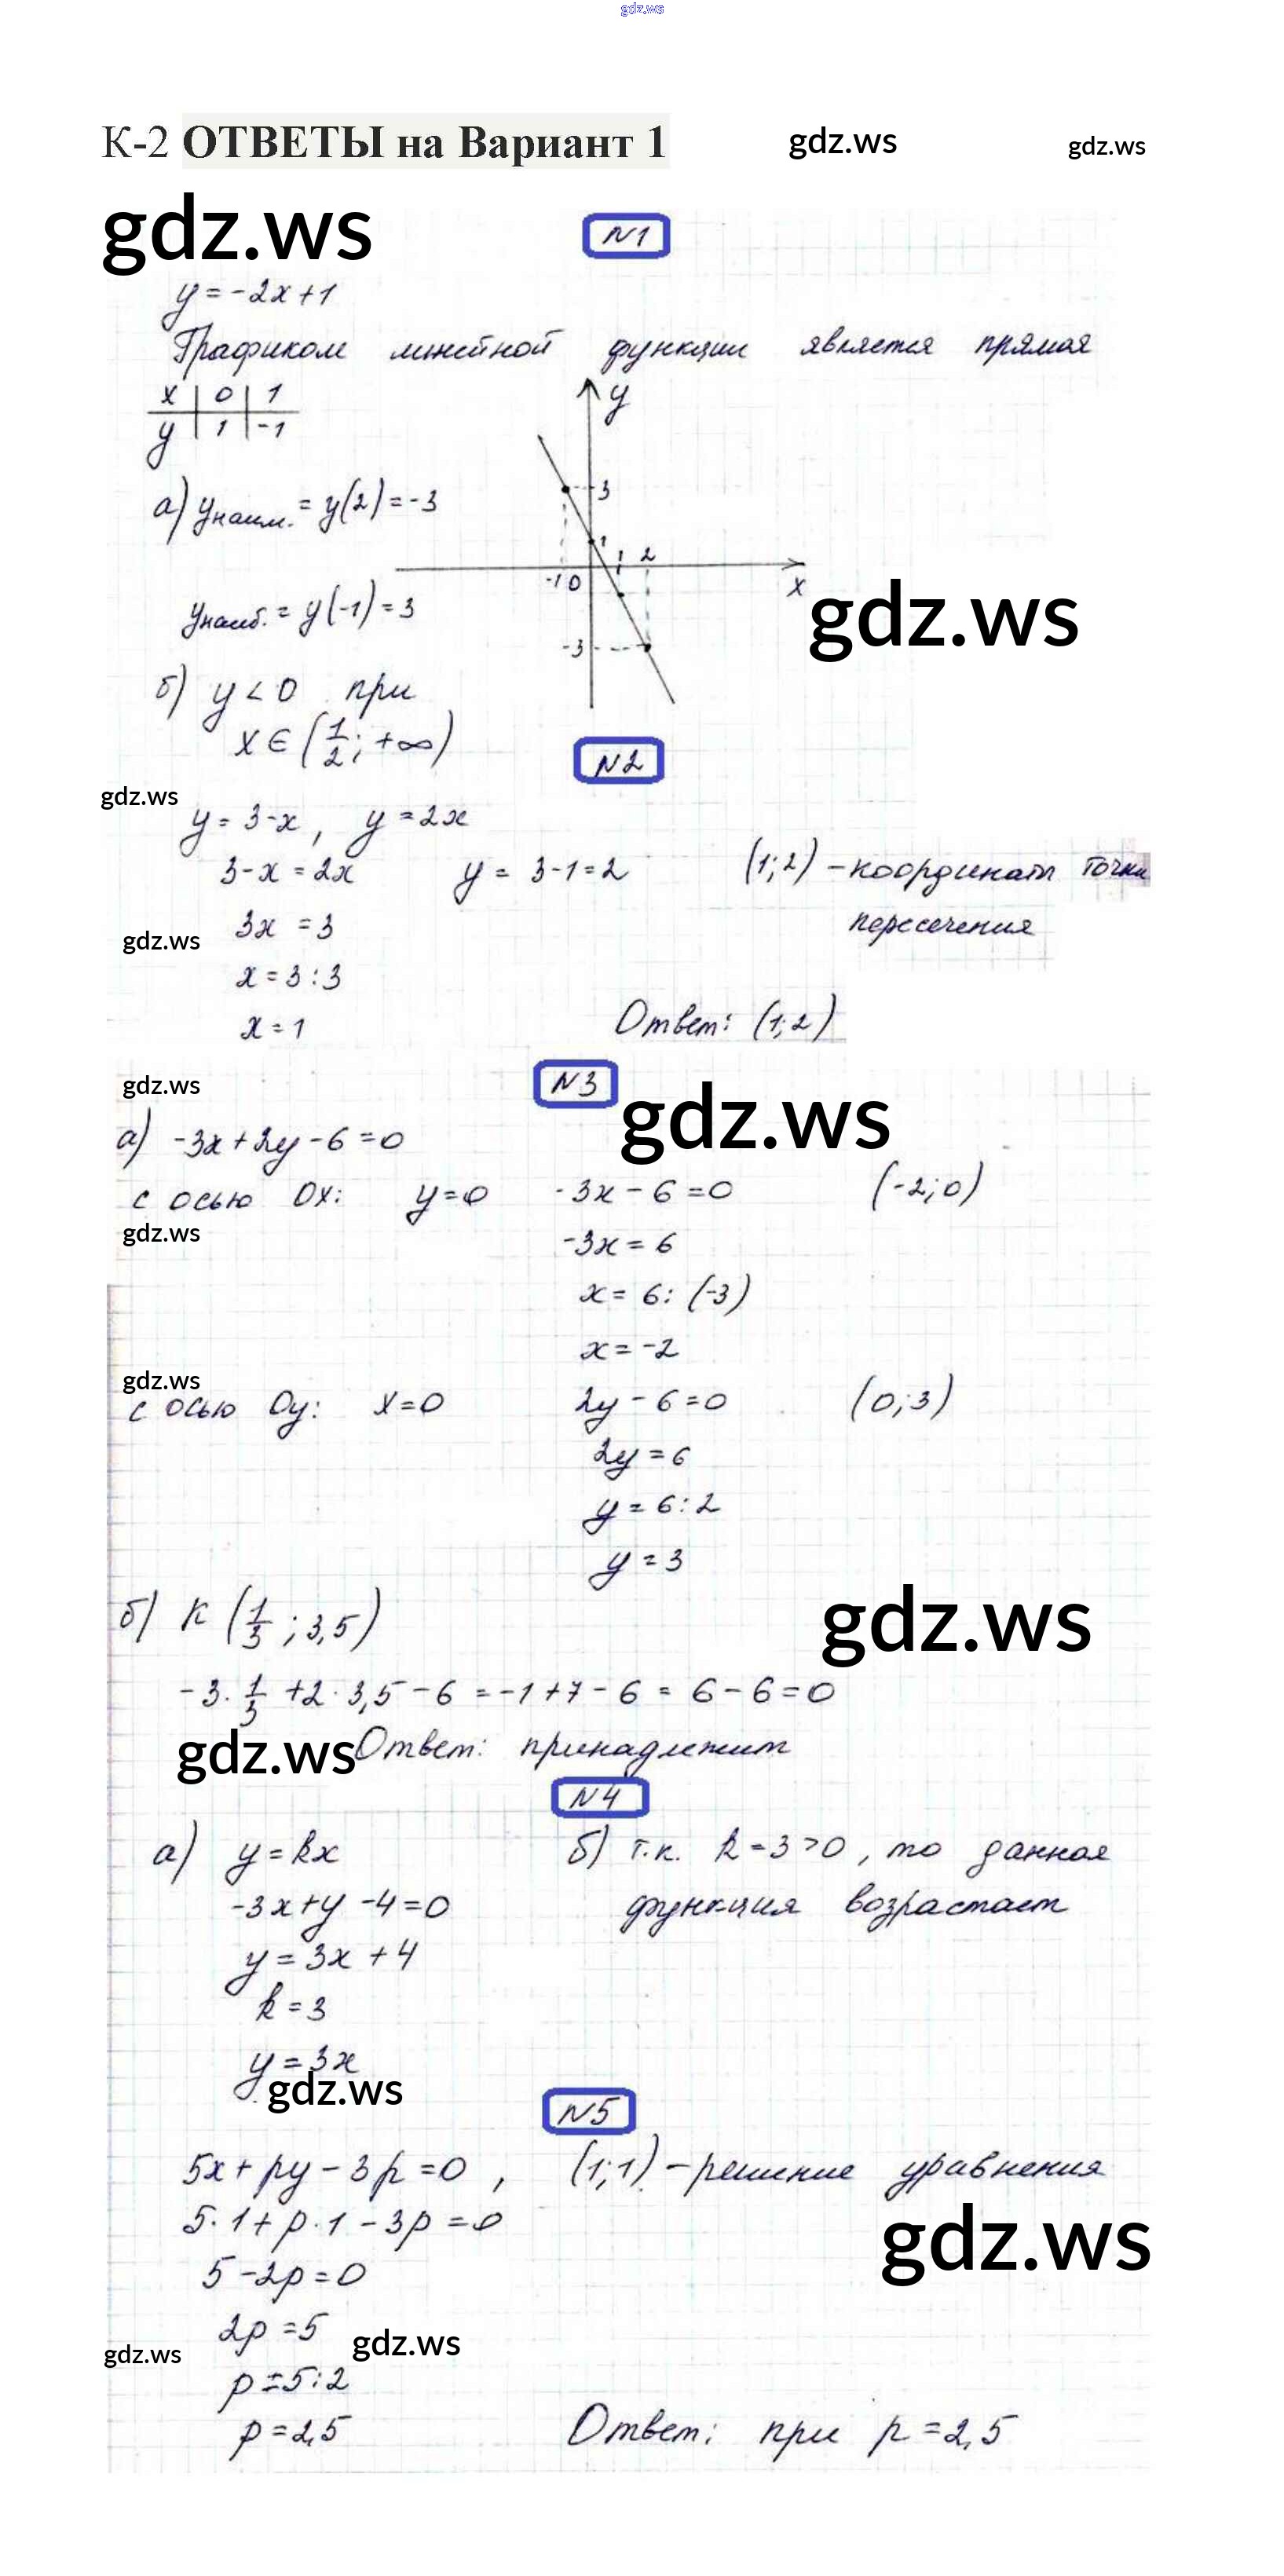 gdz.ws
К-2 ОТВЕТЫ на Вариант 1 gdz.ws gdz.ws
gdz.ws
N1
y = -2x + 1
Графиком линейной функции является прямая
x | 0 | 1
y | 1 | -1
y
а) yнаим. = y(2) = -3
3
1
1 2
-1 0
x
gdz.ws
yнаиб. = y(-1) = 3
-3
б) y < 0 при
x ∈ (1/2; +∞)
N2
gdz.ws
y = 3-x, y = 2x
3-x = 2x y = 3-1=2 (1;2) - координаты точки
пересечения
3x = 3
gdz.ws
x = 3:3
x = 1 Ответ: (1;2)
N3
gdz.ws
gdz.ws
а) -3x + 2y - 6 = 0
с осью Ox: y=0 -3x - 6 = 0 (-2;0)
gdz.ws
-3x = 6
x = 6: (-3)
x = -2
gdz.ws
с осью Oy: x=0 2y - 6 = 0 (0;3)
2y = 6
y = 6:2
y = 3
б) K (1/3; 3,5)
gdz.ws
-3·1/3 + 2·3,5 - 6 = -1+7-6 = 6-6=0
gdz.ws
Ответ: принадлежит
N4
а) y = kx б) т.к. k = 3 > 0, то данная
-3x+y-4=0 функция возрастает
y = 3x + 4
k = 3
y = 3x
gdz.ws
N5
5x + py - 3p = 0, (1;1) - решение уравнения
5·1 + p·1 - 3p = 0
gdz.ws
5 - 2p = 0
2p = 5
gdz.ws
gdz.ws
p = 5:2
p = 2,5 Ответ: при p = 2,5